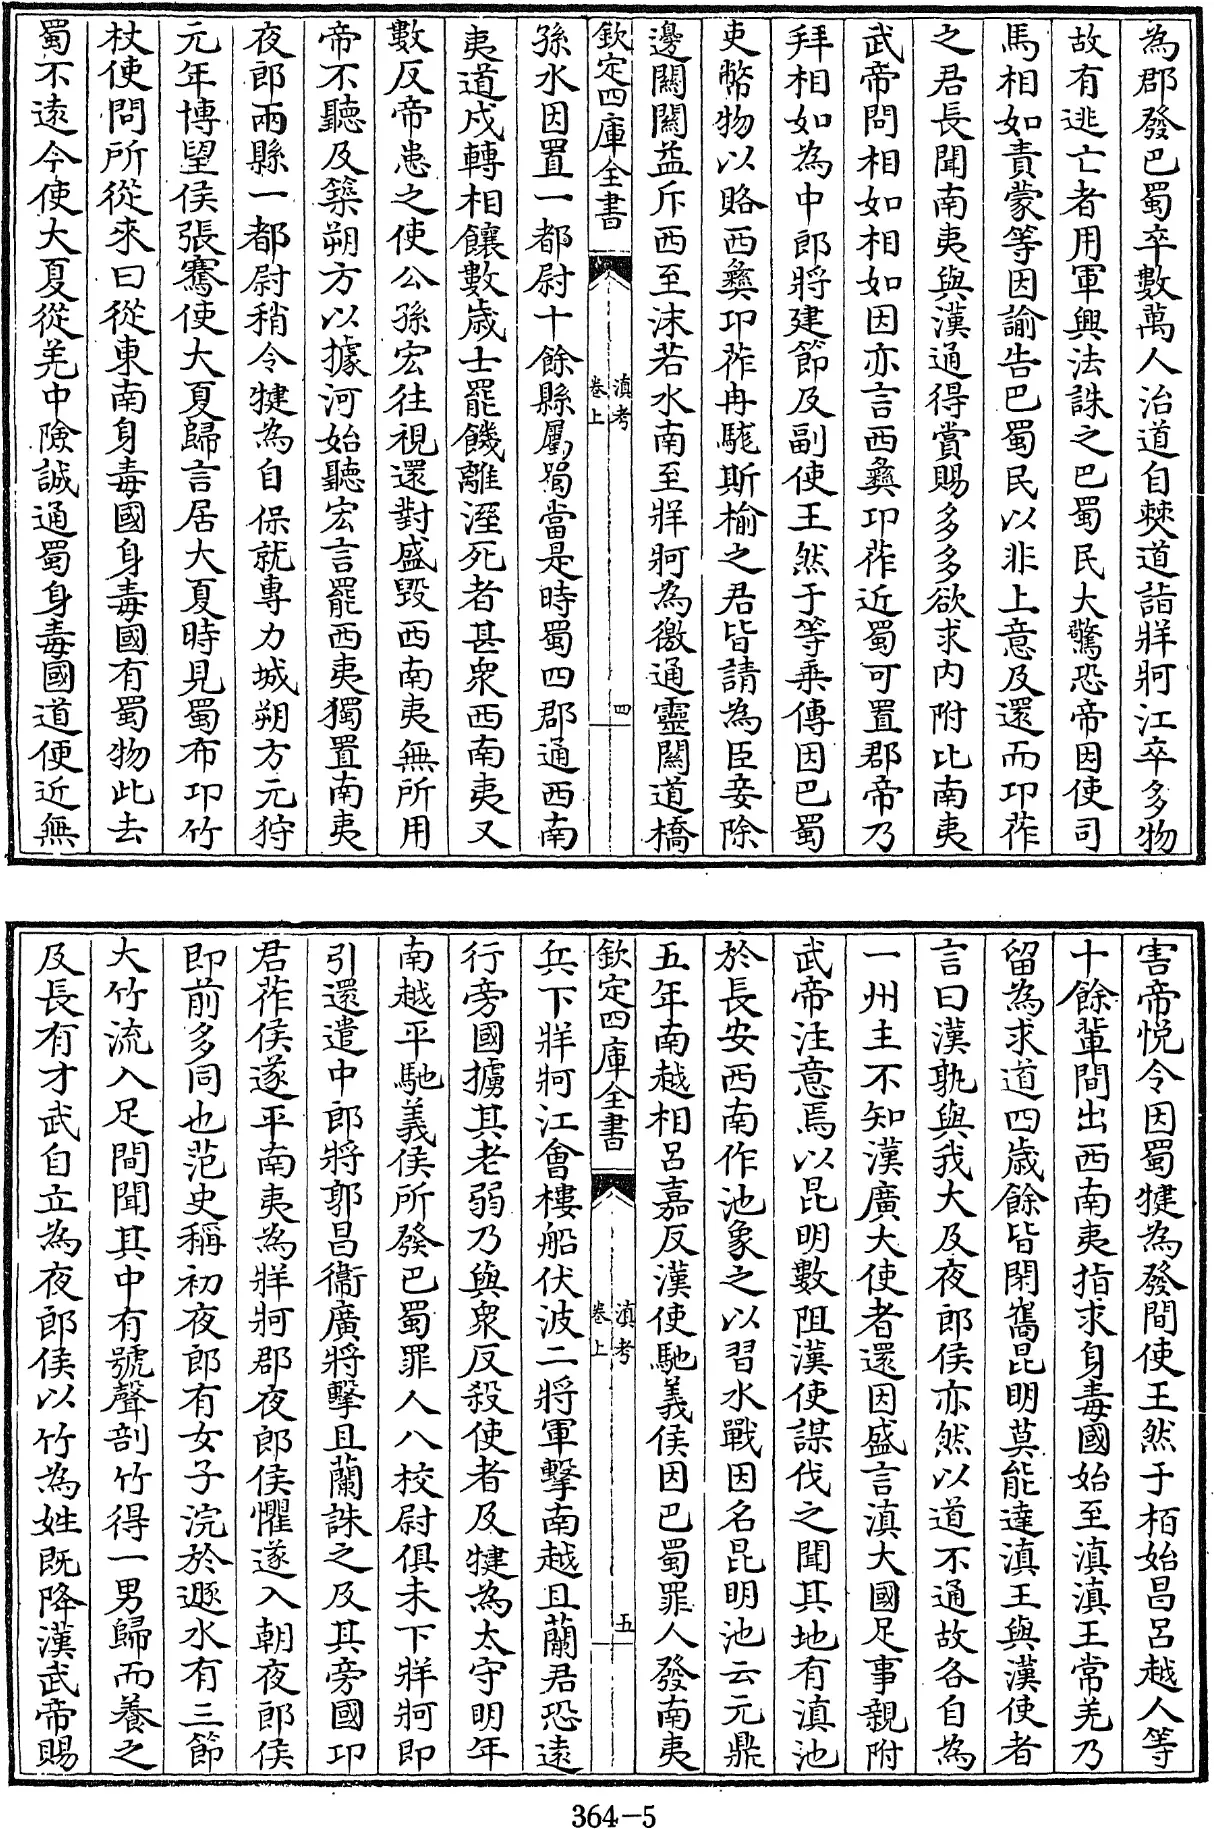 為郡發巴蜀卒數萬人治道自僰道詣牂牁江卒多物
故有逃亡者用軍興法誅之巴蜀民大驚恐帝因使司
馬相如責蒙等因諭告巴蜀民以非上意及還而邛莋
之君長聞南夷與漢通得賞賜多多欲求內附比南夷
武帝問相如相如因亦言西彞邛莋近蜀可置郡帝乃
拜相如為中郎將建節及副使王然于等乗傳因巴蜀
吏幣物以賂西彞邛莋冉駹斯榆之君皆請為臣妾除
邊關關益斥西至沬若水南至牂牁為徼通靈關道橋
欽定四庫全書
滇考
卷上
四
孫水因置一都尉十餘縣屬蜀當是時蜀四郡通西南
夷道戍轉相饟數歲士罷餓離溼死者甚衆西南夷又
數反帝患之使公孫宏往視還對盛毀西南夷無所用
帝不聽及築朔方以據河始聽宏言罷西夷獨置南夷
夜郎兩縣一都尉稍令犍為自保就專力城朔方元狩
元年博望侯張騫使大夏歸言居大夏時見蜀布邛竹
杖使問所從來曰從東南身毒國身毒國有蜀物此去
蜀不遠今使大夏從羌中險誠通蜀身毒國道便近無
害帝悅令因蜀犍為發間使王然于栢始昌呂越人等
十餘輩間出西南夷指求身毒國始至滇滇王常羌乃
留為求道四歲餘皆閉巂昆明莫能達滇王與漢使者
言曰漢孰與我大及夜郎侯亦然以道不通故各自為
一州主不知漢廣大使者還因盛言滇大國足事親附
武帝注意焉以昆明數阻漢使謀伐之聞其地有滇池
於長安西南作池象之以習水戰因名昆明池云元鼎
五年南越相呂嘉反漢使馳義侯因巴蜀罪人發南夷
欽定四庫全書
滇考
卷上
五
兵下牂牁江會樓船伏波二將軍擊南越且蘭君恐遠
行旁國擄其老弱乃與衆反殺使者及犍為太守明年
南越平馳義侯所發巴蜀罪人八校尉俱未下牂牁即
引還遣中郎將郭昌衞廣將擊且蘭誅之及其旁國邛
君莋侯遂平南夷為牂牁郡夜郎侯懼遂入朝夜郎侯
即前多同也范史稱初夜郎有女子浣於遯水有三節
大竹流入足間聞其中有號聲剖竹得一男歸而養之
及長有才武自立為夜郎侯以竹為姓既降漢武帝賜
364-5